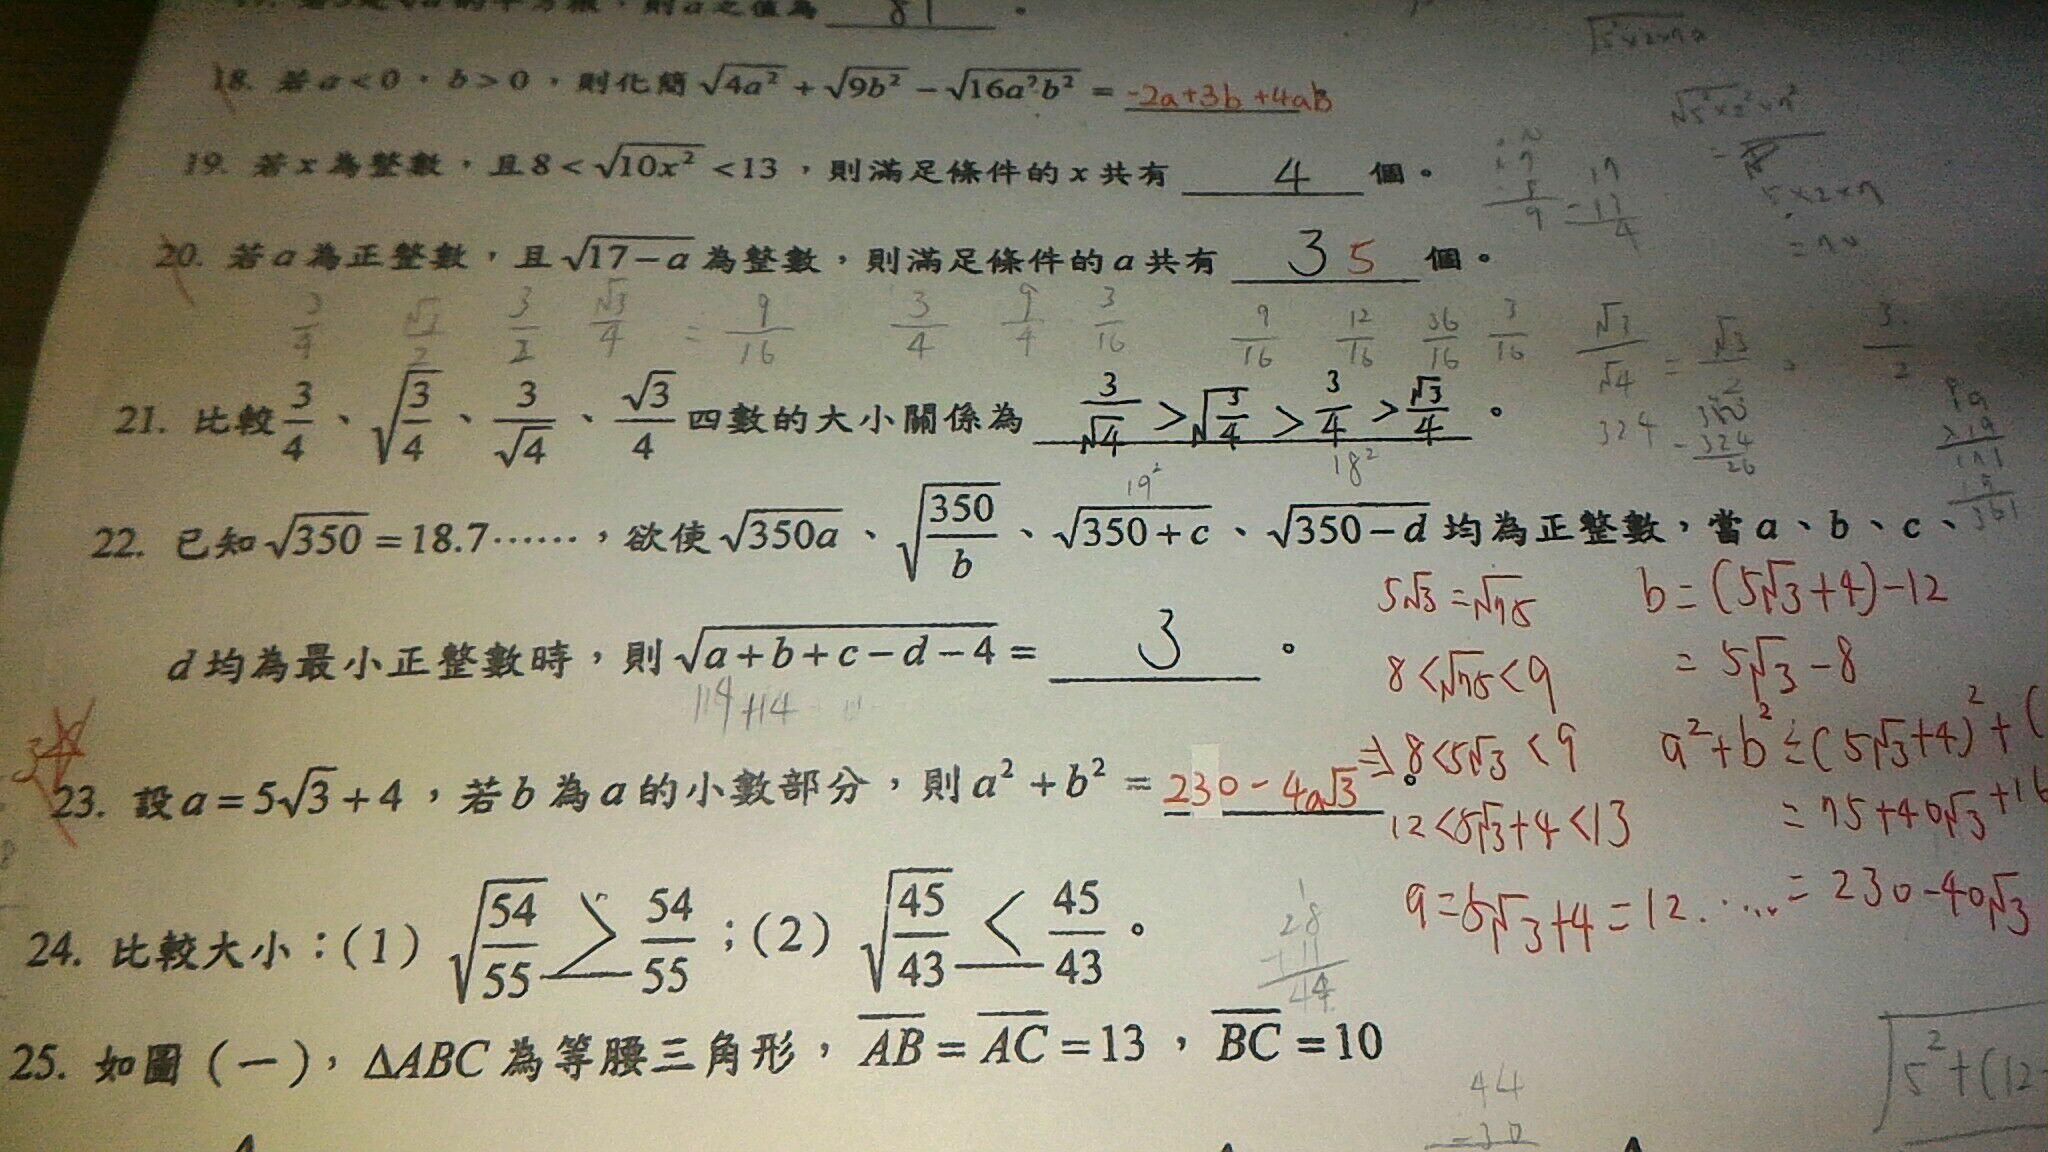 的平方根，則a之值為 81 。
18. 若a<0，b>0，則化簡√4a² + √9b² − √16a²b² = -2a+3b+4ab
19. 若x為整數，且8<√10x² <13，則滿足條件的x共有 4 個。
20. 若a為正整數，且√17−a為整數，則滿足條件的a共有 3 5 個。
3/4 √3/2 3/2 √3/4 = 9/16 3/4 9/4 3/16 9/16 12/16 36/16 3/16 √3/√4 = √3/2 3/2
21. 比較3/4、√(3/4)、3/√4、√3/4四數的大小關係為 3/√4 > √(3/4) > 3/4 > √3/4 。
19² 18²
324
22. 已知√350=18.7……，欲使√350a、√(350/b)、√350+c、√350−d均為正整數，當a、b、c、
d均為最小正整數時，則√a+b+c−d−4= 3 。
114+14
5√3=√75 b=(5√3+4)-12
8<√75<9 = 5√3-8
⇒8<5√3<9 a²+b²=(5√3+4)²+(
12<5√3+4<13 =75+40√3+16
a=5√3+4=12..... =230-40√3
23. 設a=5√3+4，若b為a的小數部分，則a²+b²= 230-40√3 。
24. 比較大小：(1) √(54/55) > 54/55；(2) √(45/43) < 45/43。
28
+11
44
25. 如圖(一)，ΔABC為等腰三角形，AB=AC=13，BC=10
44
-30
√5²+(12-